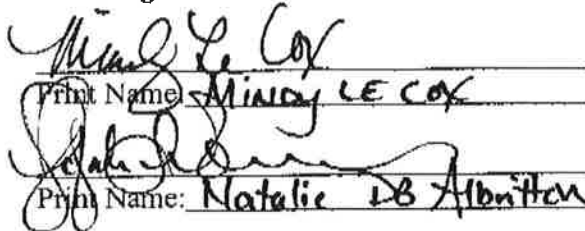 Mindy Le Cox
Print Name: MINDY LE COX
Print Name: Natalie DB Albritton